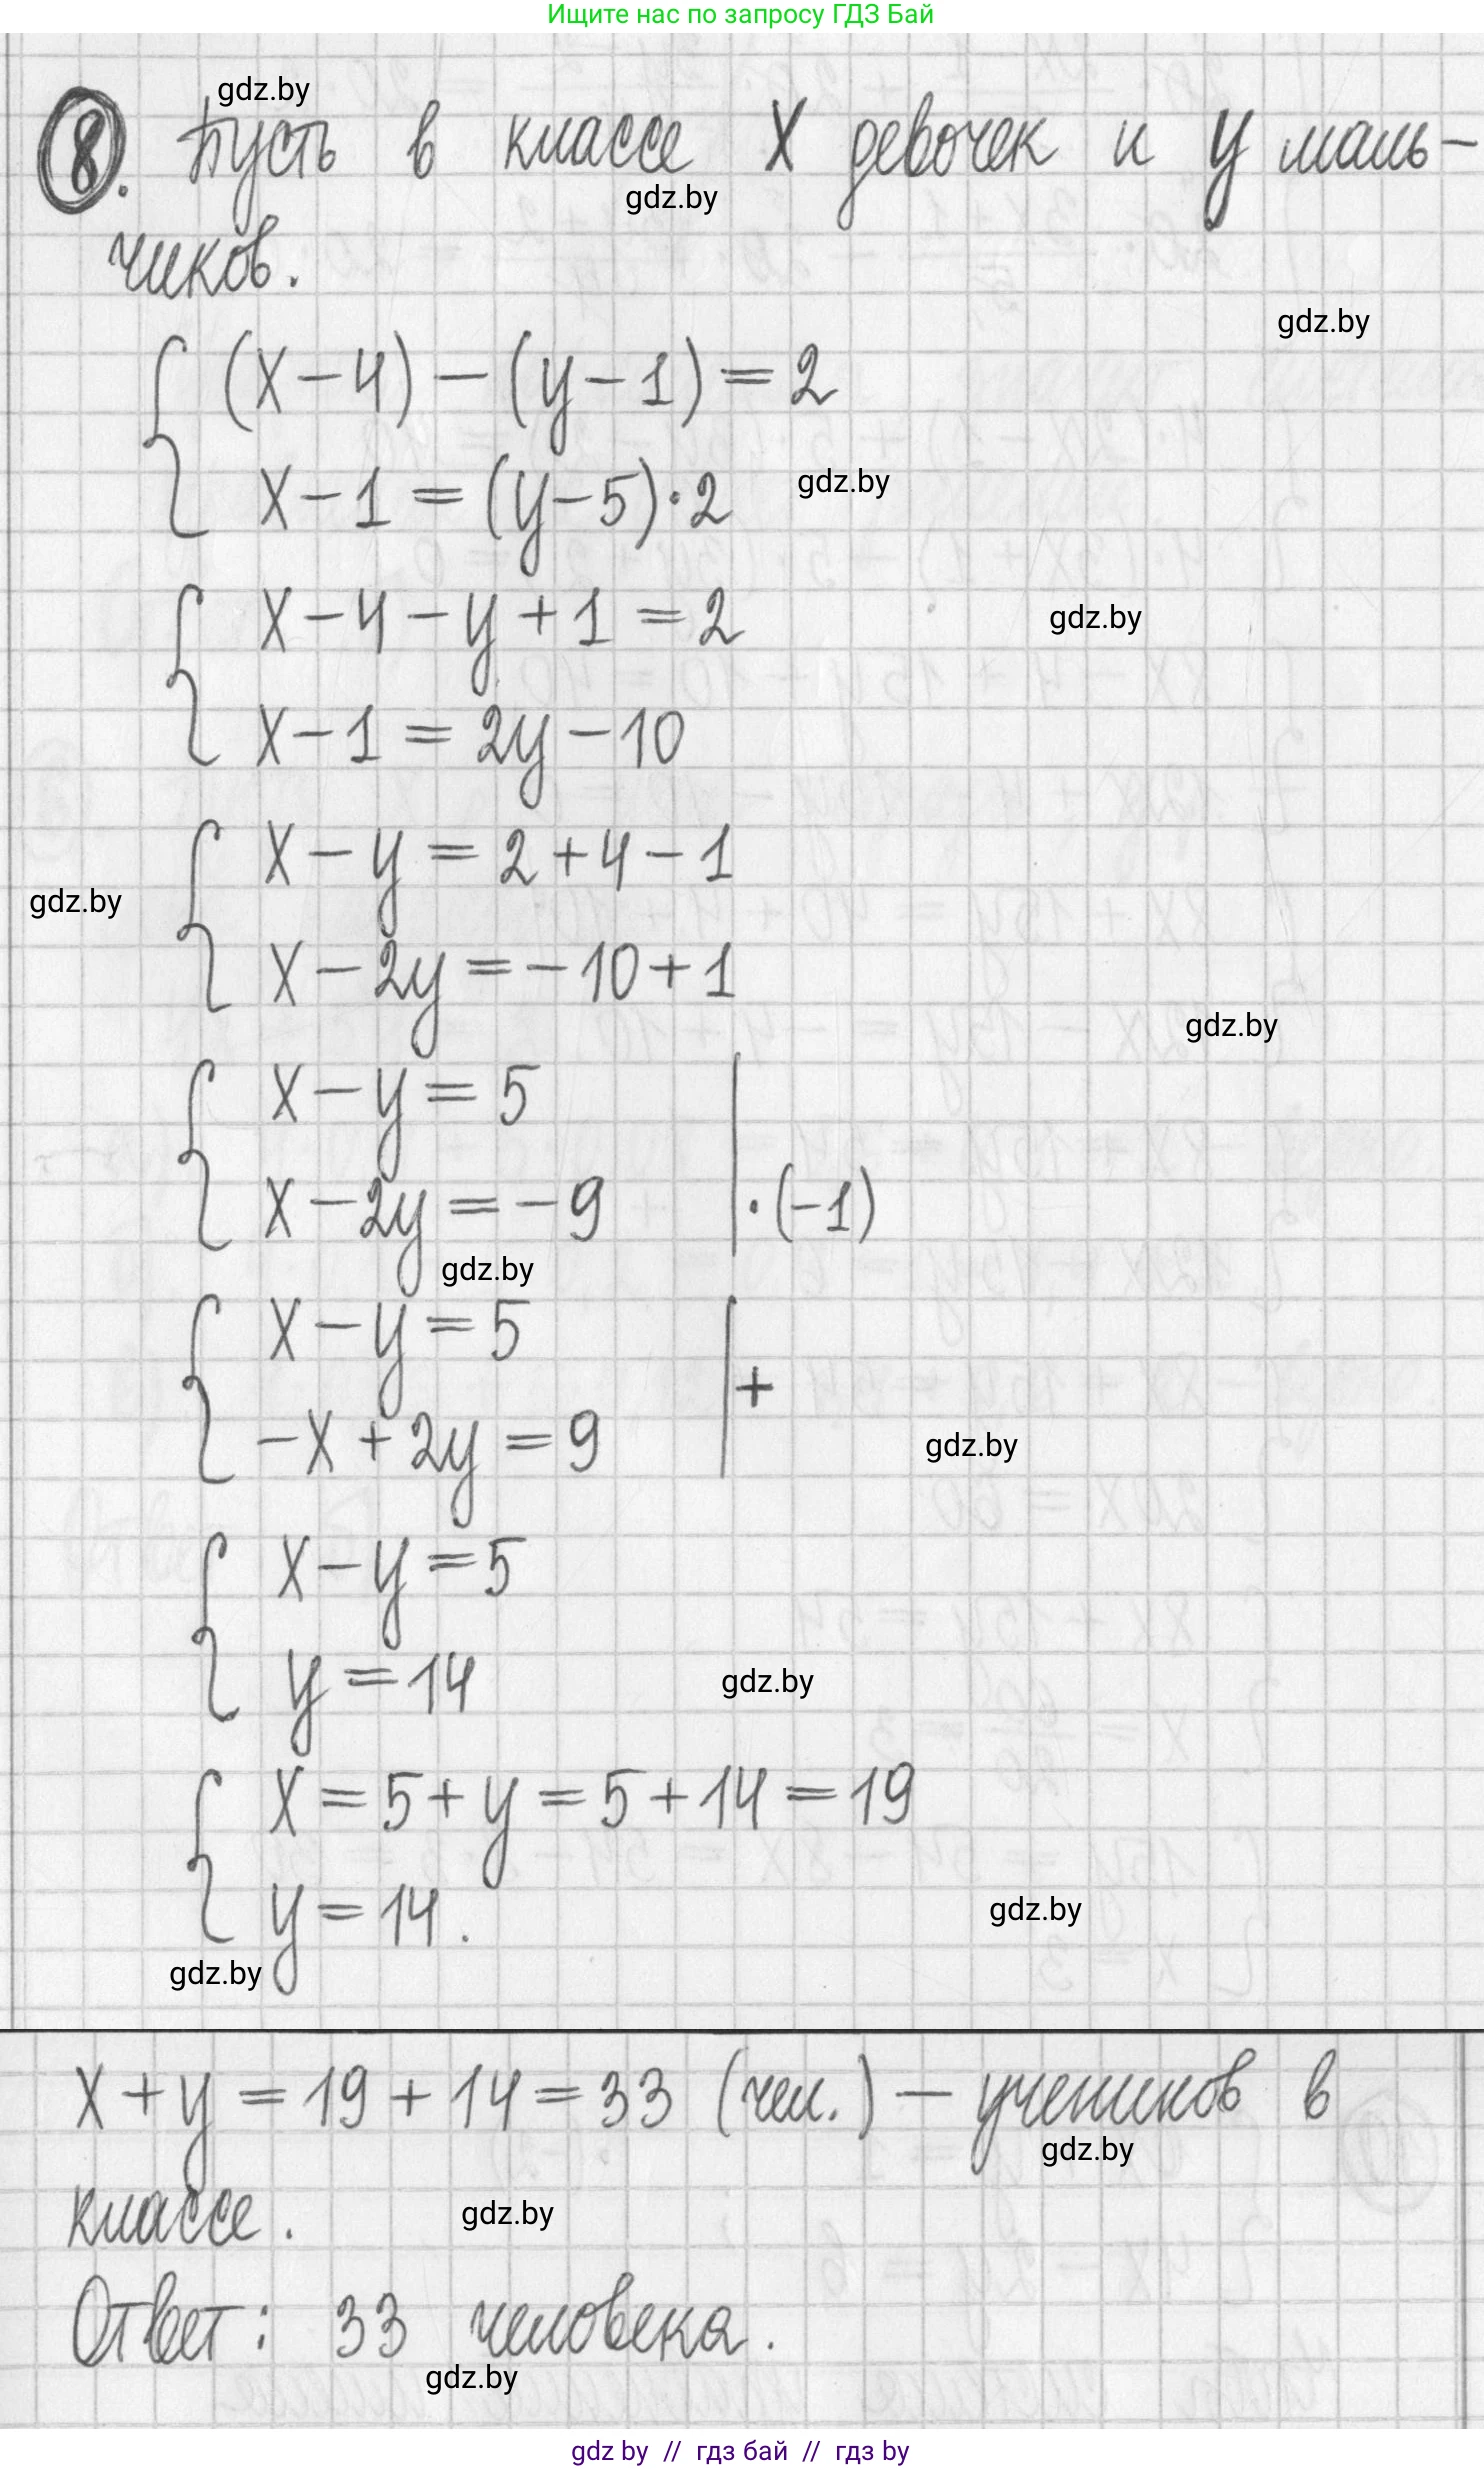 Ищите нас по запросу ГДЗ Бай
gdz.by
8. Пусть в классе X девочек и y маль-
gdz.by
чиков.
gdz.by
(x-4)-(y-1)=2
x-1=(y-5)·2
gdz.by
x-4-y+1=2
gdz.by
x-1=2y-10
x-y=2+4-1
gdz.by
x-2y=-10+1
gdz.by
x-y=5
x-2y=-9 |·(-1)
gdz.by
x-y=5
-x+2y=9 |+
gdz.by
x-y=5
y=14
gdz.by
x=5+y=5+14=19
y=14.
gdz.by
gdz.by
x+y=19+14=33 (чел.) — учеников в
gdz.by
классе.
gdz.by
Ответ: 33 человека.
gdz.by
gdz by // гдз бай // гдз by